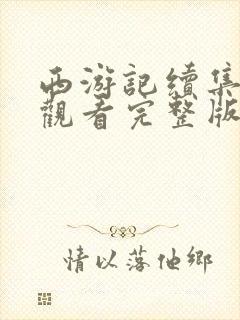 西游記續集
觀看完整版
情以落他鄉